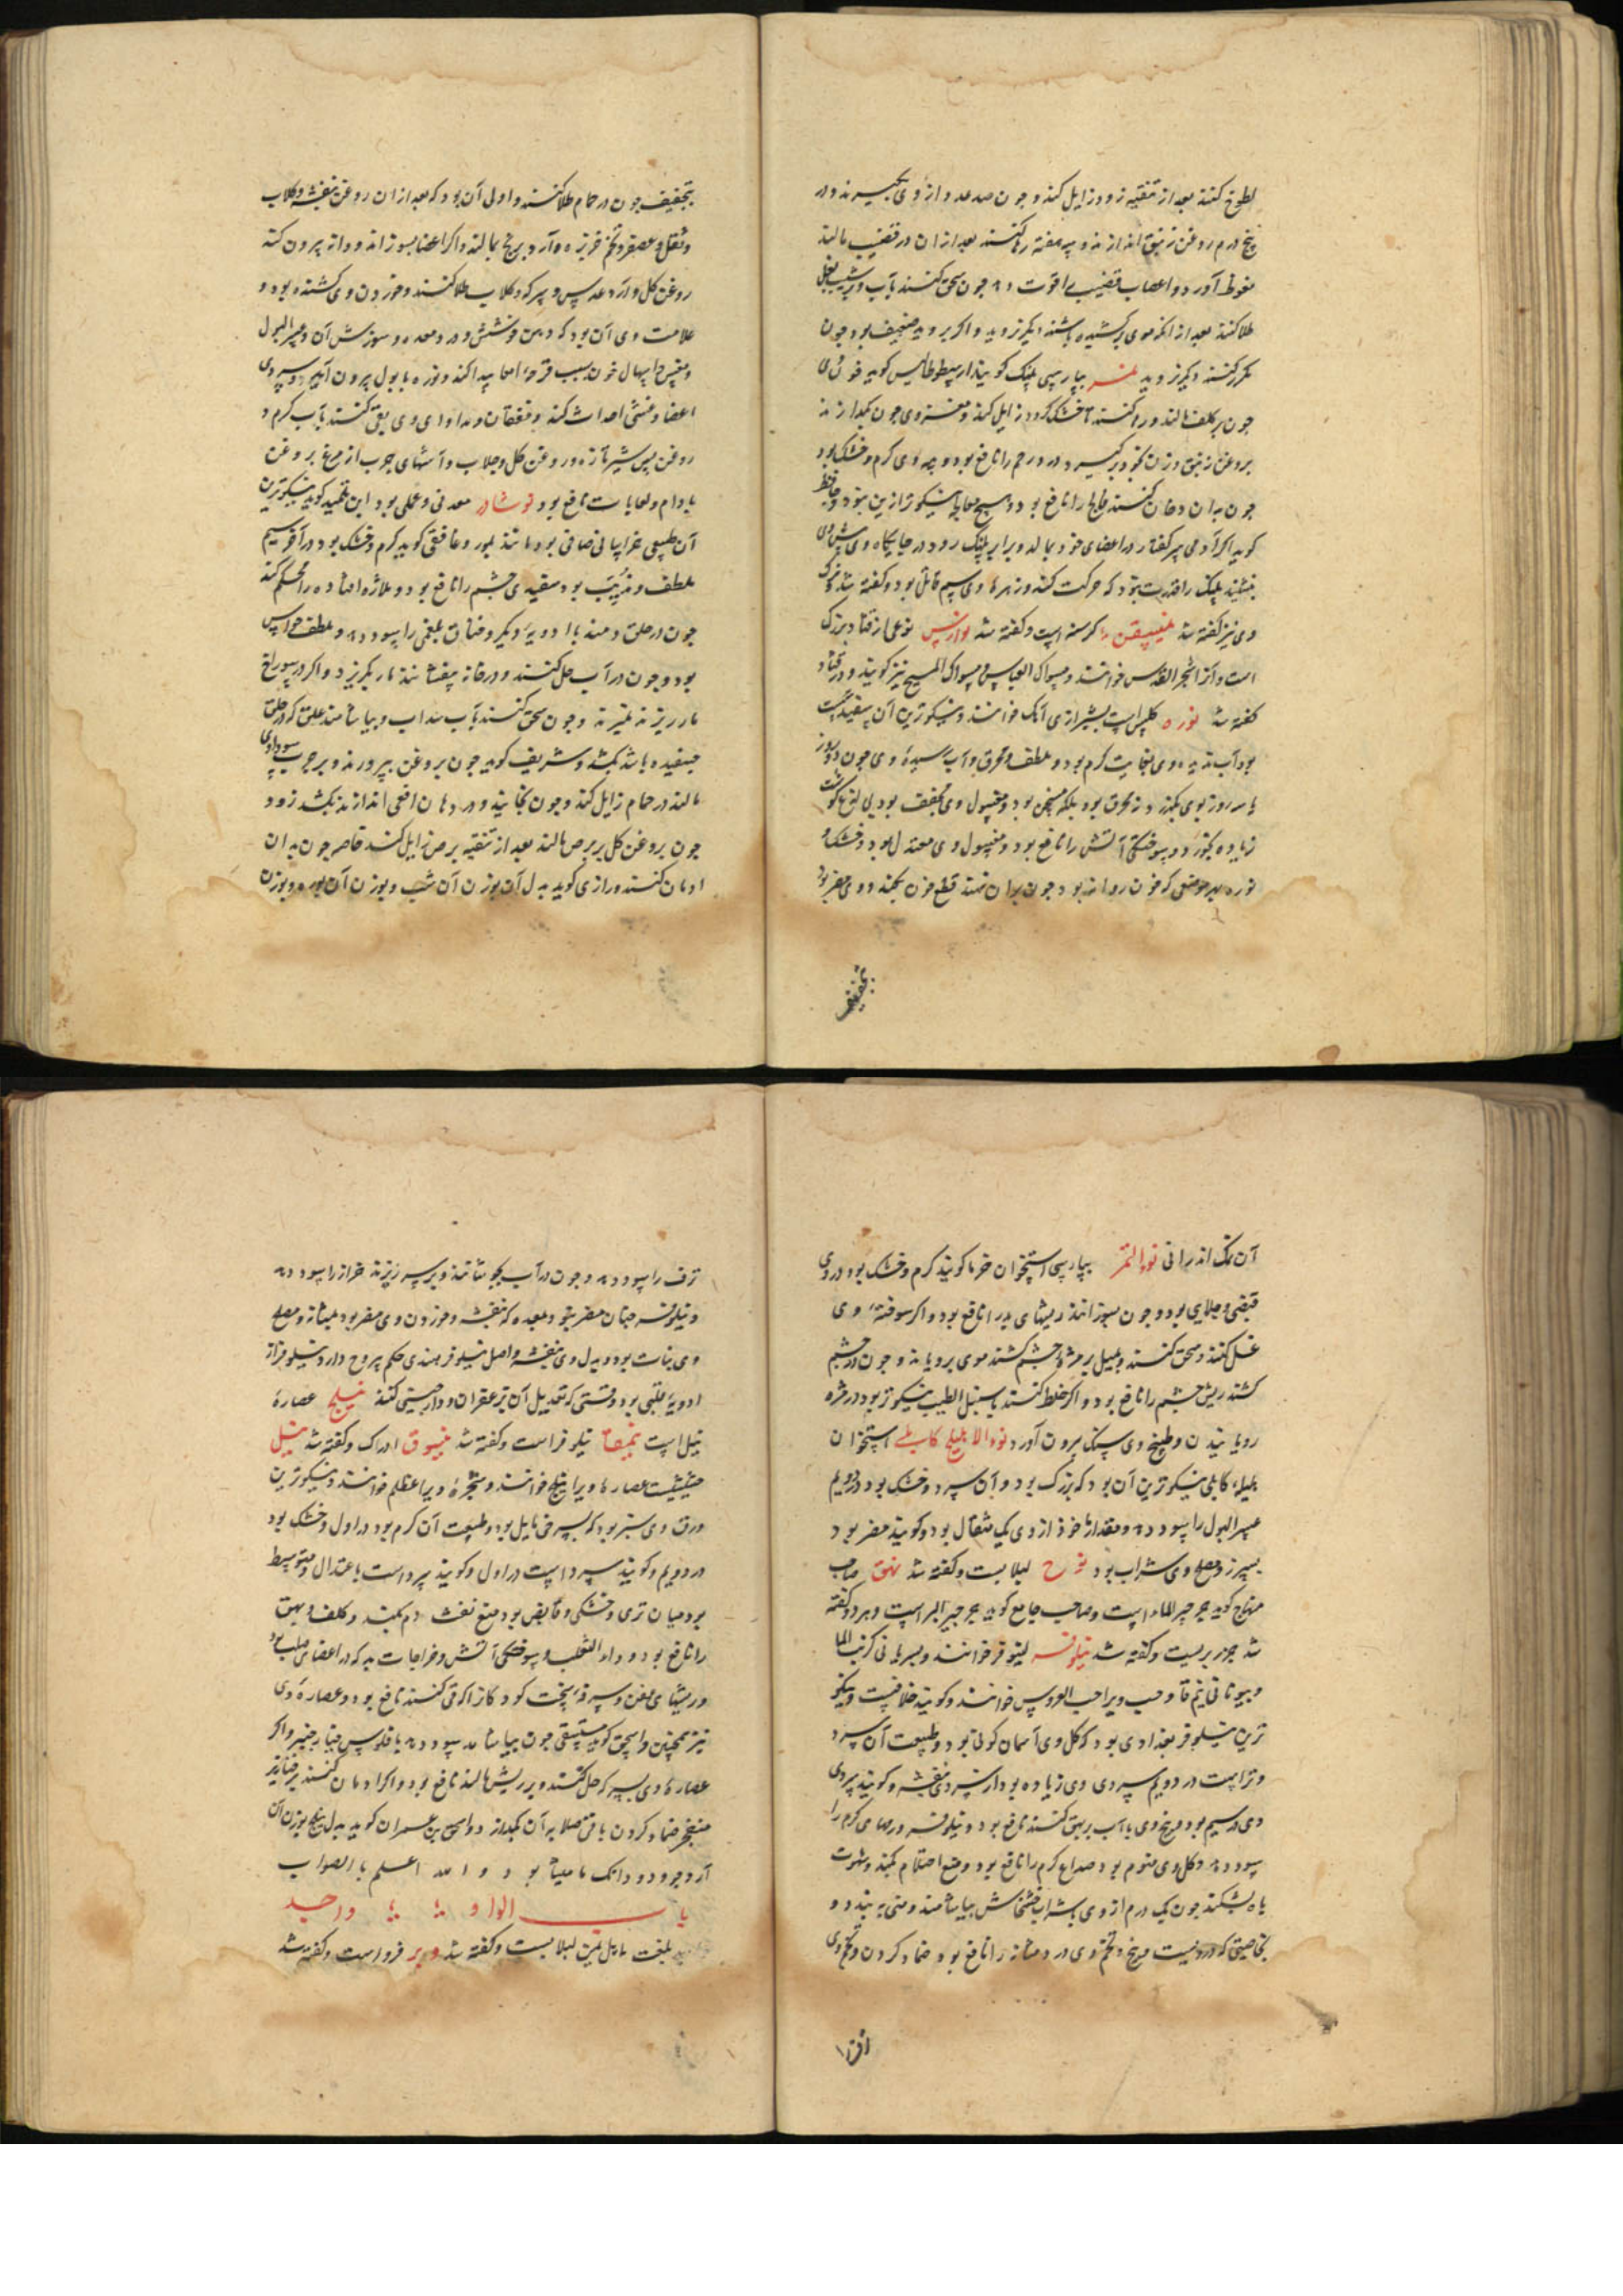 لطوخ کنند بعد از تنقیه زود زایل کند و جون صد عدد از وی بگیرند و در
پنج درم روغن زنبق اندازند و سه هفته رها کنند بعد ازان در قضیب مالند
نعوظ آورد و اعصاب قضیب را قوت دهد جون سحق کنند بآب و بر شیب بغل
طلا کنند بعد از انکه موی برکشیده باشند دیکر نروید و اکر بروید ضعیف بود جون
مکرر کنند دیکر نروید نمر بپارسی پلنک کویند ارسطوطالیس کوید خون وی
جون بر کلف مالند و رها کنند تا خشک کردد زایل کند و مغز وی جون بکدازند
بروغن زنبق و زن بخود برکیرد درد رحم را نافع بود و پیه وی کرم و خشک بود
جون بدان دهان کنند فالج را نافع بود و هیچ معالجه نیکوتر ازین نبود و جاحظ
کوید اکر آدمی پیه کفتار در اعضای خود بمالد و برابر پلنک رود در جایکاه وی پیش وی
بنشیند پلنک را قدرت نبود که حرکت کند و زهره وی سم قاتل بود و کفته شد و ترک
وی نیز کفته شد نمیسیقن کرسنه است و کفته شد نوارس نوعی از قتاد بزرک
است و آنرا شجر القدس خوانند و مسواک العباس و مسواک المسیح نیز کویند و در قتاد
کفته شد نوره کلس است بشیرازی آهک خوانند و نیکوترین آن سفیدست
بود آب ندیده وی بغایت کرم بود و ملطف و محرق و آب رسیده وی جون دو روز
یا سه روز بوی بکذرد نه محرق بود بلکه مسخن بود و مغسول وی مجفف بود بی لذع کوشت
زیاده بخورد و سوختکی آتش را نافع بود و مغسول وی معتدل بود و خشک و
نوره بهر موضعی که خون روانه بود جون بران نهند قطع خون بکند و وی مضر بود
بتجفیف
بتجفیف جون در حمام طلا کنند و اولی آن بود که بعد ازان روغن بنفشه و کلاب
و ثفل و عصفر و تخم خربزه و آرد برنج بمالند و اکر اعضا بسوزاند و دانه بیرون کند
روغن کل و آرد عدس و سرکه و کلاب طلا کنند و خوردن وی کشنده بود و
علامت وی آن بود که دهن و شش و درد معده و سوزش آن و عسر البول
و مغص و اسهال خون بسبب قرحه امعا پیدا کند و نوره با بول بیرون آید و سردی
اعضا و غشی احداث کند و خفقان و مداوای وی بقی کنند بآب کرم و
روغن پس شیر تازه و روغن کل و جلاب و آشهای جرب از مرغ بروغن
بادام و لعابات نافع بود نوشادر معدنی و عملی بود ابن تلمیذ کوید نیکوترین
آن طبیعی خراسانی صافی بود مانند بلور و غافقی کوید کرم و خشک بود در آخر سیم
ملطف و مذیب بود سفیدی جشم را نافع بود و ملازه افتاده را محکم کند
جون در حلق دمند با ادویه دیکر و خناق بلغمی را سود دهد و ملطف حواس
بود و جون در آب حل کنند و در خانه بیفشانند مار بکریزد و اکر در سوراخ
مار ریزند بمیرند و جون سحق کنند بآب سداب و بیاشامند علق که در حلق
جسفیده باشد بکشد و شریف کوید جون بروغن بپرورند و بر جرب سوداوی
مالند در حمام زایل کند و جون بخایند و در دهان افعی اندازند بکشد زود
جون بروغن کل بر برص مالند بعد از تنقیه برص زایل کند خاصه جون بدان
ادمان کنند و رازی کوید بدل آن بوزن آن شب و بوزن آن بوره و بوزن
آن نمک اندرانی نوی التمر بپارسی استخوان خرما کویند کرم و خشک بود در وی
قبضی و جلایی بود و جون بسوزانند ریشهای بد را نافع بود و اکر سوخته وی
غسل کنند و سحق کنند و بمیل بر مژه جشم کشند موی برویاند و جون در جشم
کشند ریش جشم را نافع بود و اکر خلط کنند با سنبل الطیب نیکوتر بود در مژه
رویانیدن و طبیخ وی سنک بیرون آورد نوی الاهلیلج کابلی استخوان
هلیله کابلی نیکوترین آن بود که بزرک بود و آن سرد و خشک بود در دویم
عسر البول را سود دهد و مقدار ماخوذ از وی یک مثقال بود و کویند مضر بود
بسپرز و مصلح وی شراب بود نوح لبلابست و کفته شد نهق صاحب
منهاج کوید جرجیر الماء است و صاحب جامع کوید جرجیر البر است و هر دو کفته
شد جزر بریست و کفته شد نیلوفر لینوفر خوانند و بسریانی کرنب الما
و بیونانی نیم‌فا و حب ویرا حب العروس خوانند و کویند خلافیست و نیکو
ترین نیلوفر بغدادی بود که کل وی آسمان کونی بود و طبیعت آن سرد
و تر است در دویم سردی وی زیاده بود از سردی بنفشه و کویند سردی
وی در سیم بود و بیخ وی با آب بر بهق کنند نافع بود و نیلوفر ورمهای کرم را
سود دهد و کل وی منوم بود صداع کرم را نافع بود و منع احتلام بکند و شهوت
باه بشکند جون یک درم از وی بشراب خشخاش بیاشامند و منی ببندد و
بخاصیتی که دروست و بیخ و تخم وی درد مثانه را نافع بود ضماد کردن و تخم وی
نزف
نزف را سود دهد و جون در آب بجوشانند و بر سر ریزند حزاز را سود دهد
و نیلوفر جنان مضر نبود بمعده که بنفشه و خوردن وی مضر بود بمثانه و مصلح
وی نبات بود و بدل وی بنفشه و اصل نیلوفر هندی حکم یبروح دارد و نیلوفر از
ادویه قلبی بود وقتی که تعدیل آن بزعفران و دارجینی کنند نیلج عصاره
نیل است نیمفا نیلوفر است و کفته شد نیسوق ادرک و کفته شد نیل
حشیشیست عصاره ویرا نیلج خوانند و شجره ویرا عظلم خوانند و نیکوترین
ورق وی سبز بود که بسرخی مایل بود و طبیعت آن کرم بود در اول و خشک بود
در دویم و کویند سرد است در اول و کویند سرد است باعتدال و متوسط
بود میان تری و خشکی و قابض بود منع نفث دم بکند و کلف و بهق
را نافع بود و داء الثعلب و سوختکی آتش و جراحات بد که در اعضای صلب بود
و ریشهای عفن و سرفه سخت کودکان را کر قی کنند نافع بود و عصاره وی
نیز همجنین و اسحق کوید مستسقی جون بیاشامد سود دهد با فلوس خیارجنبر و اکر
عصاره وی بسرکه حل کنند و بر ریش مالند نافع بود و اکر ادمان کنند بر خنازیر
منفجر ضماد کردن باقی صلابه آن بکدازد و اسحق بن عمران کوید بدل نیلج بوزن آن
آرد جو و دو دانک مامیثا بود و الله اعلم بالصواب
باب الواو واحد
بلغت مابل یمن لبلابست و کفته شد وبر فرو است و کفته شد